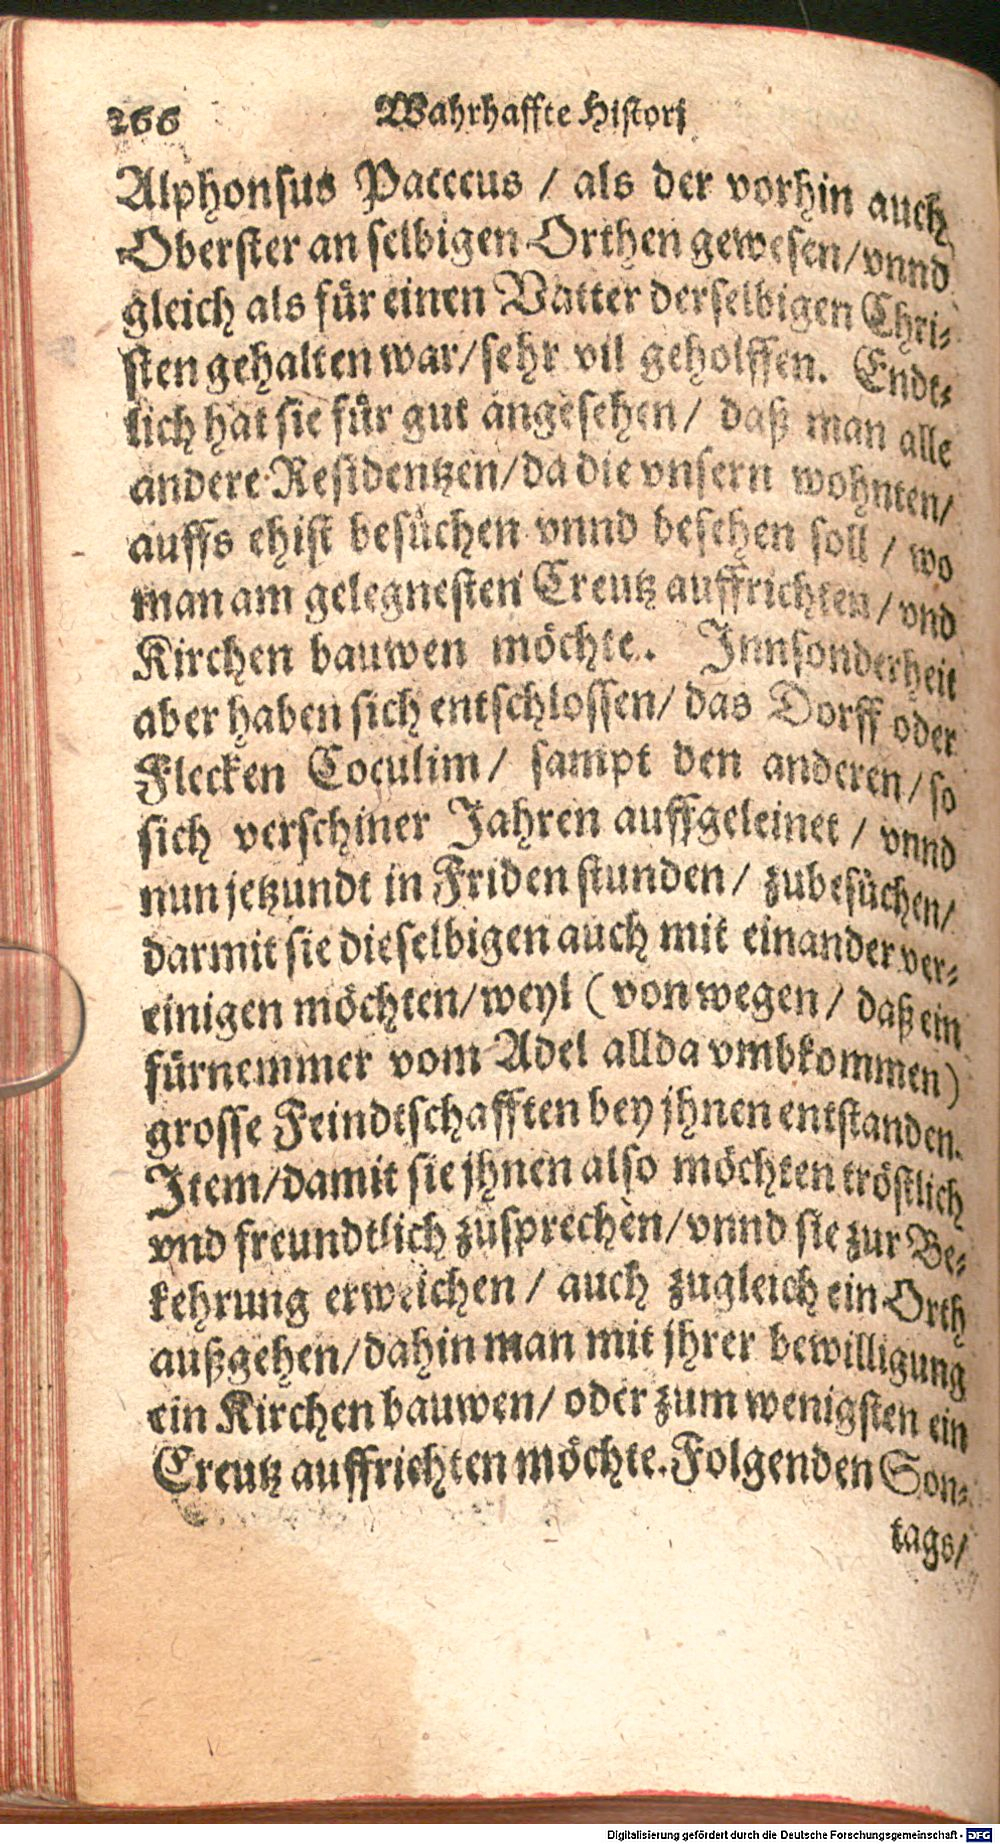 266 Wahrhaffte Histori
Alphonsus Pacecus / als der vorhin auch
Oberster an selbigen Orthen gewesen/vnnd
gleich als für einen Vatter derselbigen Chri-
sten gehalten war/sehr vil geholffen. Endt-
lich hat sie für gut angesehen/ daß man alle
andere Residentzen/da die vnsern wohnten/
auffs ehist besüchen vnnd besehen soll / wo
man am gelegnesten Creutz auffrichten/vnd
Kirchen bauwen möchte. Innsonderheit
aber haben sich entschlossen/ das Dorff oder
Flecken Coculim/ sampt den anderen/so
sich verschiner Jahren auffgeleinet / vnnd
nun jetzundt in Friden stunden/ zubesüchen/
darmit sie dieselbigen auch mit einander ver-
einigen möchten/weyl (von wegen/ daß ein
fürnemmer vom Adel allda vmbkommen)
grosse Feindtschafften bey jhnen entstanden.
Item/damit sie jhnen also möchten tröstlich
vnd freundtlich züsprechen/vnnd sie zur Be-
kehrung erweichen / auch zugleich ein Orth
außgehen/dahin man mit jhrer bewilligung
ein Kirchen bauwen/ oder zum wenigsten ein
Creutz auffrichten möchte. Folgenden Son-
tags/
Digitalisierung gefördert durch die Deutsche Forschungsgemeinschaft - DFG